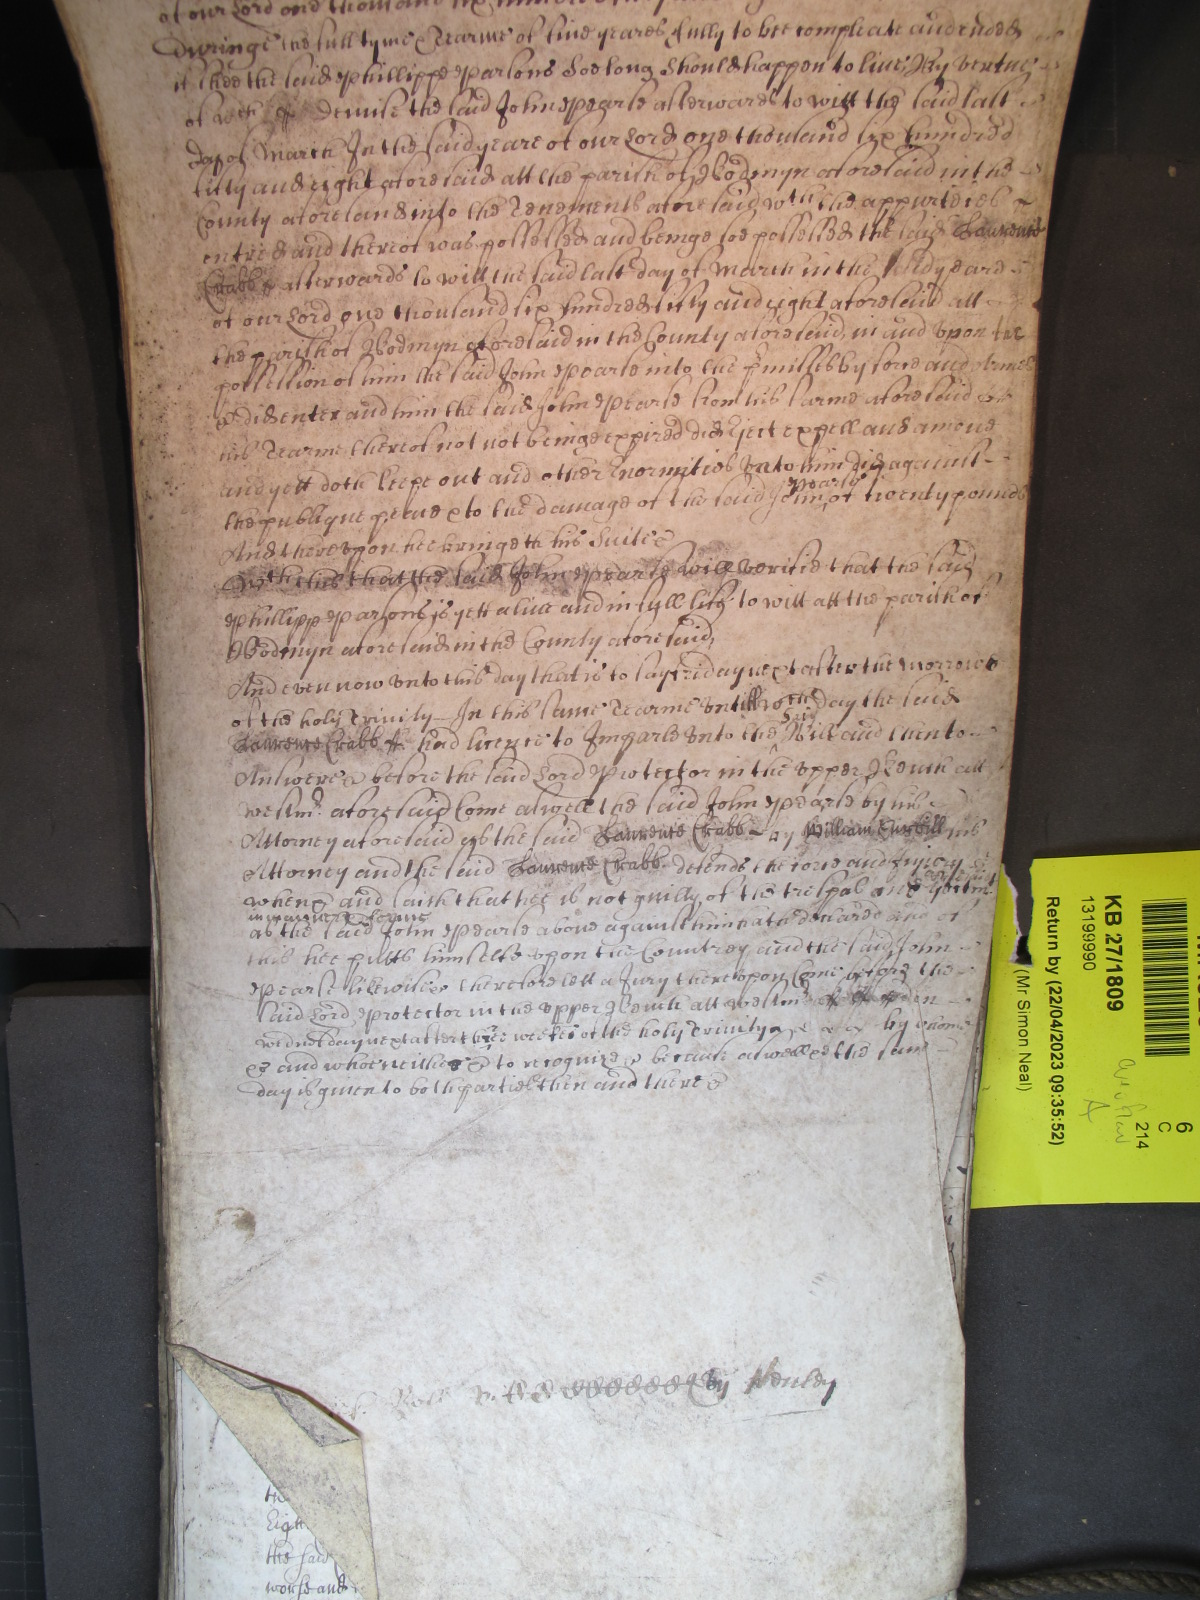 of our Lord one thousand six hundred
Duringe the full tyme & tearme of five yeares fully to bee compleate and ended
if hee the said Phillippe Parsons soe long should happen to live, By vertue
of wch demise the said John Pearse afterwards to witt the said last
day of March In the said yeare of our Lord one thousand six hundred
fifty and eight aforesaid att the parish of Bodmyn aforesaid in the
County aforesaid into the Tenements aforesaid wth the appurtences
entred and thereof was possessed and beinge soe possessed the said Laurence
Crabb afterwards to witt the said last day of March in the said yeare
of our Lord one thousand six hundred fifty and eight aforesaid att
the parish of Bodmyn aforesaid in the County aforesaid, in and upon the
possession of him the said John Pearse into the pmisses by force and armes
did enter and him the said John Pearse from his farme aforesaid
his Tearme thereof not not beinge expired did Eject expell and amove
and yett doth keepe out and other Enormities unto him did against
the publique peace & to the damage of the said John Pearse of twenty pounds
And thereupon hee bringeth his Suite
With this that the said John Pearse will verifie that the said
Phillipp Parsons is yett alive and in full life to witt att the parish of
Bodmyn aforesaid in the County aforesaid,
And even now unto this day that is to say friday next after the morrowe
of the holy Trinity In this same Tearme untill wch day the said
Laurence Crabb had licence to Imparle unto the said Bill and then to
Answere before the said Lord Protector in the upper Bench att
Westmr aforesaid Come aswell the said John Pearse by his
Attorney aforesaid as the said Laurence Crabb by William his
Attorney and the said Laurence Crabb defends the force and Injury
when & and saith that hee is not guilty of the trespas and Ejectmt aforesaid
in manner & forme
as the said John Pearse above against him hath declared and of
this hee putts himselfe upon the Countrey and the said John
Pearse likewise therefore lett a Jury thereupon Come before the
said Lord Protector in the upper Bench att Westmr on
wednesday next after three weekes of the holy Trinity by whome
&c and who neither &c to recognize &c because aswell &c the same
day is given to both parties then and there &c
by Henley
Eigh
the said
worse and
KB 27/1809
13199990
Return by (22/04/2023 09:35:52)
(Mr Simon Neal)
6
C
214